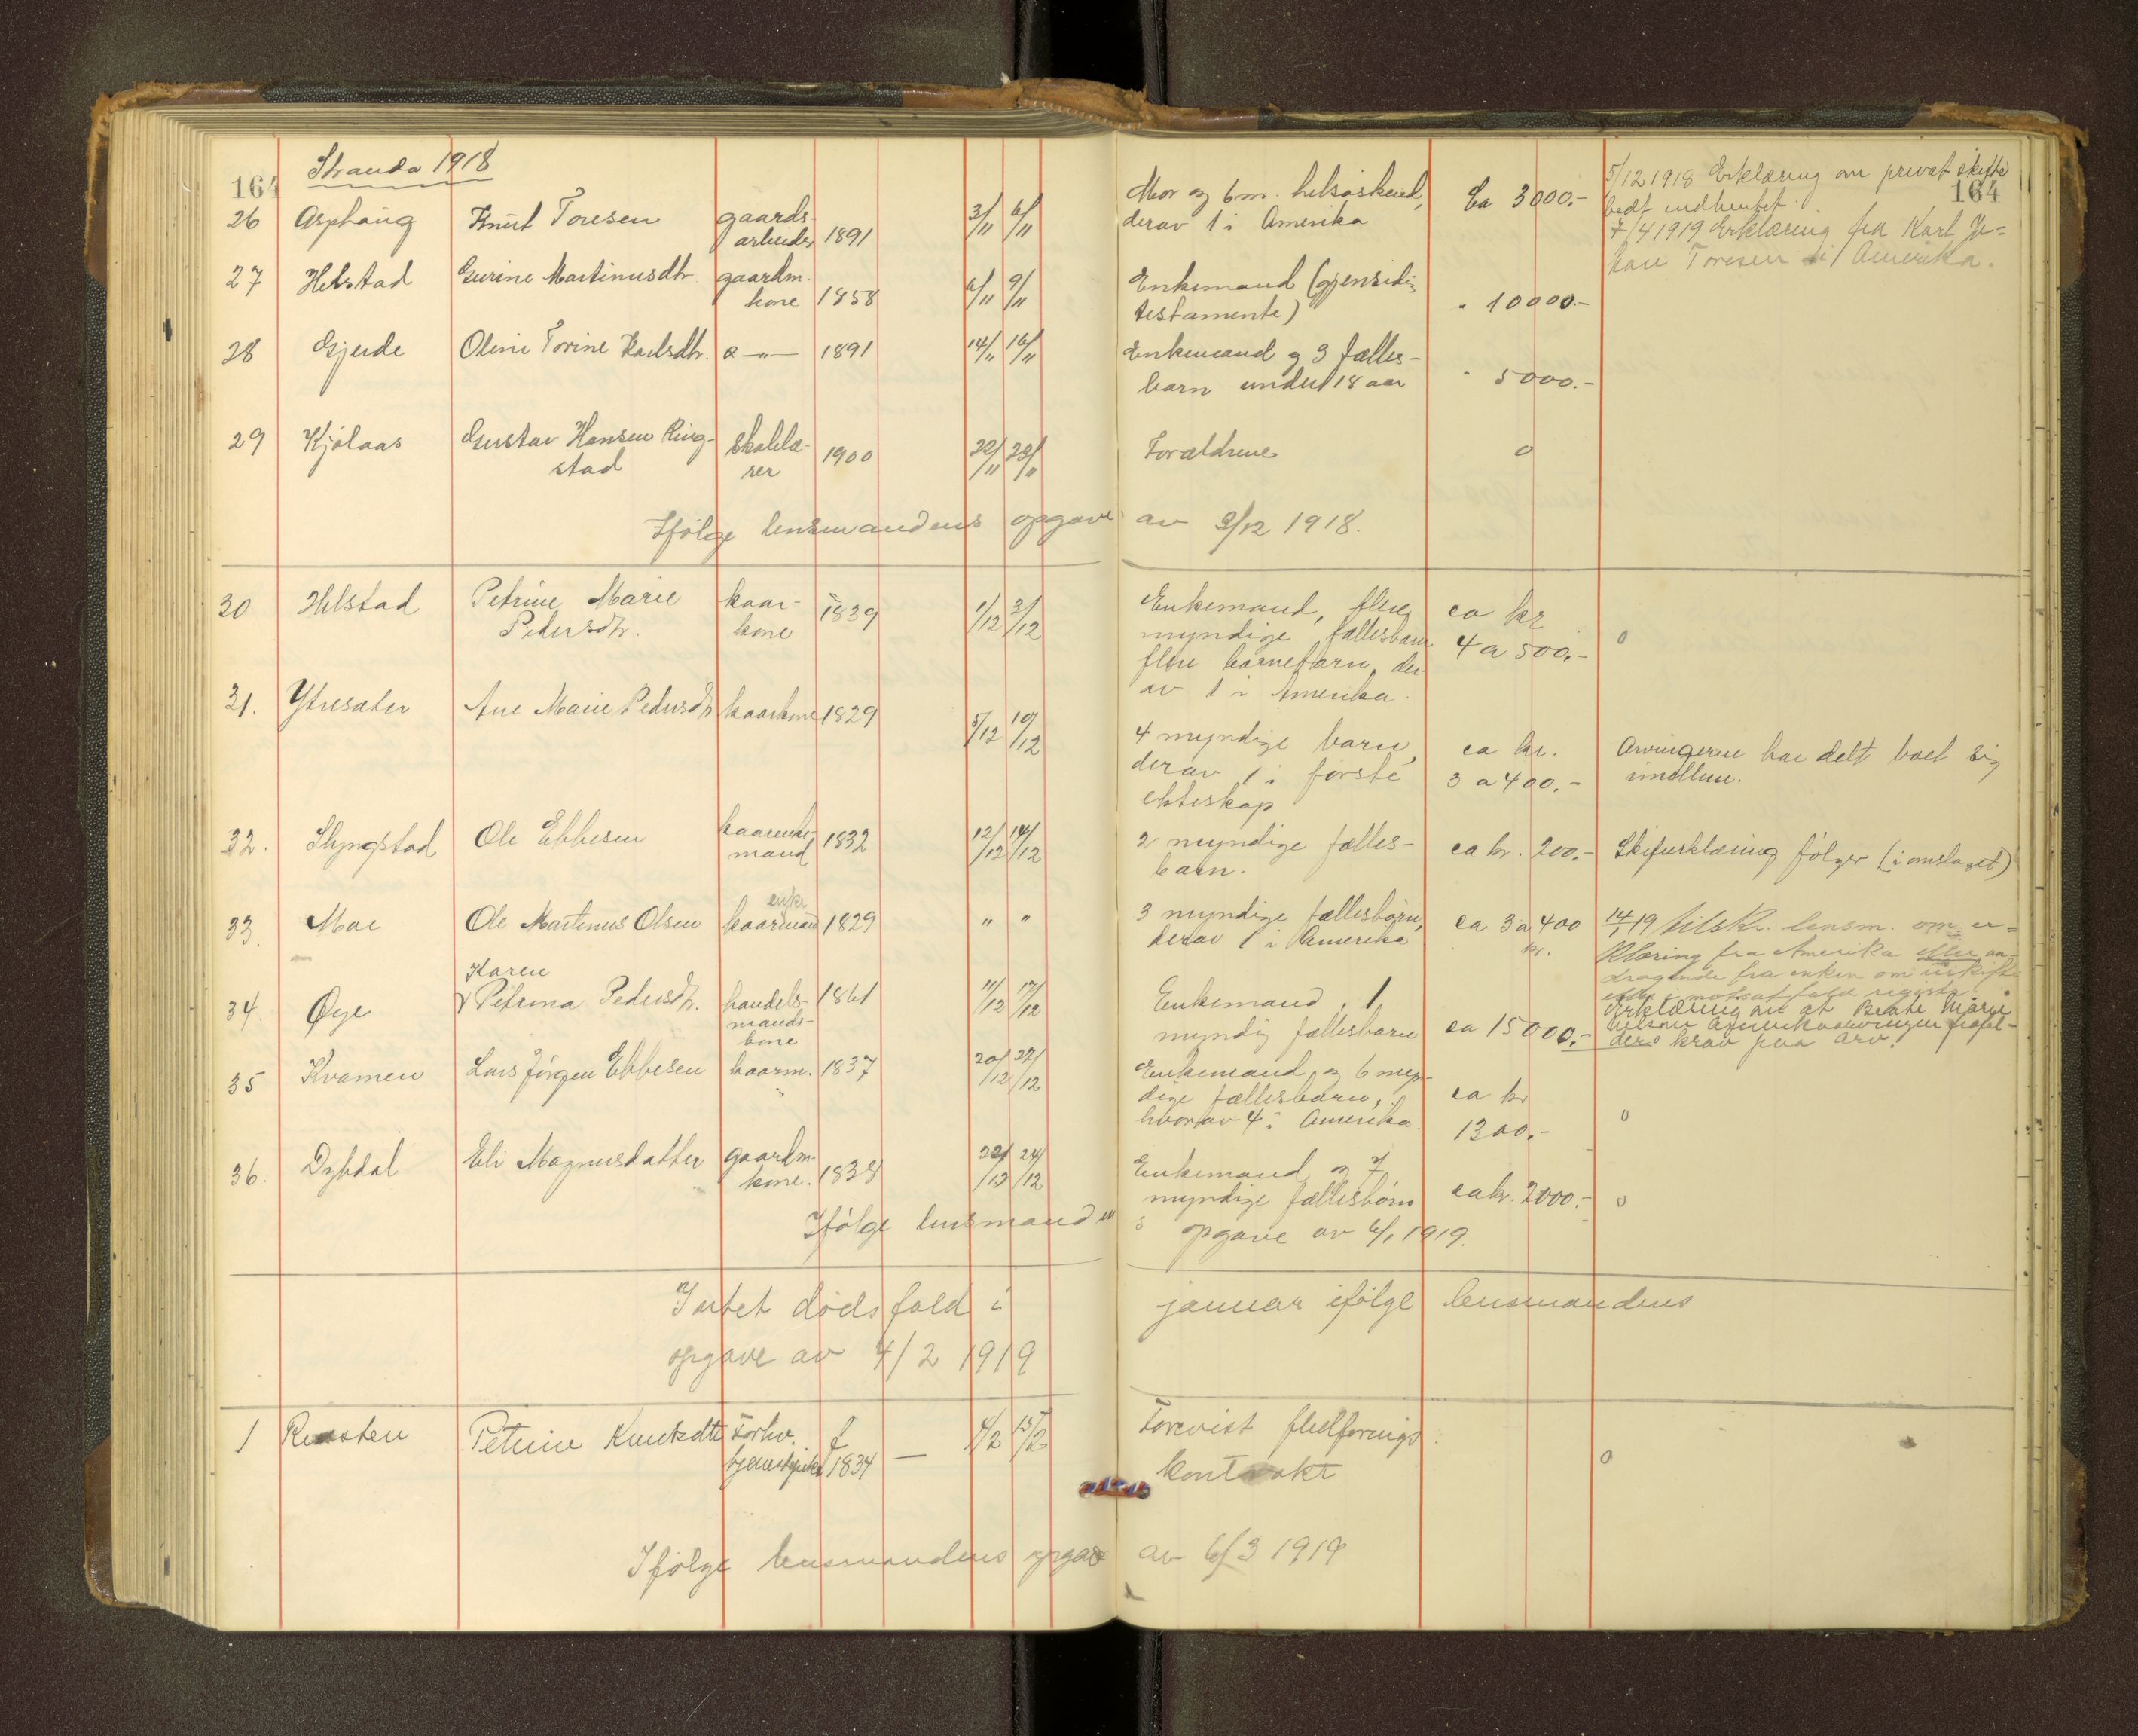 164
Stranda 1918
164
26 Asphaug Knut Toresen gaards- 3/11 6/11 Mor og 6 m. helsøskend, ca 3000.- 5/12 1918 Erklæring om privat skifte
arbeider 1891 derav 1 i Amerika bedt indhentet.
7/4 1919 Erklæring fra Karl Jo=
han Toresen i Amerika.
27 Helstad Gurine Martinusdtr. gaardm. 6/11 9/11 Enkemand (gjensidig
kone 1858 testamente) " 10000.-
28 Gjerde Oline Torine Karlsdtr. 1891 14/11 16/11 Enkemand og 3 fælles-
barn under 18 aar " 5000.-
29 Kjølaas Gustav Hansen Ring- skolelæ- 1900 22/11 23/11 Forældrene 0
stad rer
Ifølge lensmandens opgave av 3/12 1918.
30 Helstad Petrine Marie kaar- 1839 1/12 3/12 Enkemand, flere ca kr
Pedersdtr. kone myndige fællesbarn 4 a 500.- 0
flere barnebarn, der
av 1 i Amerika.
31. Ytresæter Ane Marie Pedersdtr kaarkone 1829 5/12 10/12
4 myndige barn, ca kr. Arvingerne har delt boet sig
derav 1 i første 3 a 400.- imellem.
ekteskap
32. Slyngstad Ole Ebbesen kaarenke- 1832 12/12 14/12 2 myndige fælles- ca kr. 200.- Skifterklæring følger (i omslaget)
mand barn.
33. Moe Ole Martinus Olsen kaarmand 1829 " " 3 myndige fællesbørn, ca 3 a 400 14/1 19 tilskr. lensm. om er=
enke derav 1 i Amerika kr. klæring fra Amerika eller an-
dragende fra enken om uskifte
eller i motsat fald registr.
Erklæring om at Beate Marie
Nelson Amerikaarvingen frafal-
der krav paa arv.
34. Øye Karen
Petrina Pedersdtr. handels- 1861 11/12 17/12 Enkemand, 1
mands- myndig fællesbarn ca 15000.-
kone
35 Kvamen Lars Jørgen Ebbesen kaarm. 1837 20/12 27/12 Enkemand og 6 myn-
" dige fællesbarn, ca kr
hvorav 4 i Amerika. 1300.- 0
36. Dybdal Eli Magnusdatter gaardm. 22/12 24/12 Enkemand og 7
kone. 1838 myndige fællesbørn ca kr. 2000.- 0
Ifølge lensmandens opgave av 6/1 1919.
Intet dødsfald i januar ifølge lensmandens
opgave av 4/2 1919
1 Petrine Knutsdtr Forhv. f 4/2 15/2 Forevist
tjenestepike 1834 — kontrakt 0
Ifølge lensmandens opgave av 6/3 1919